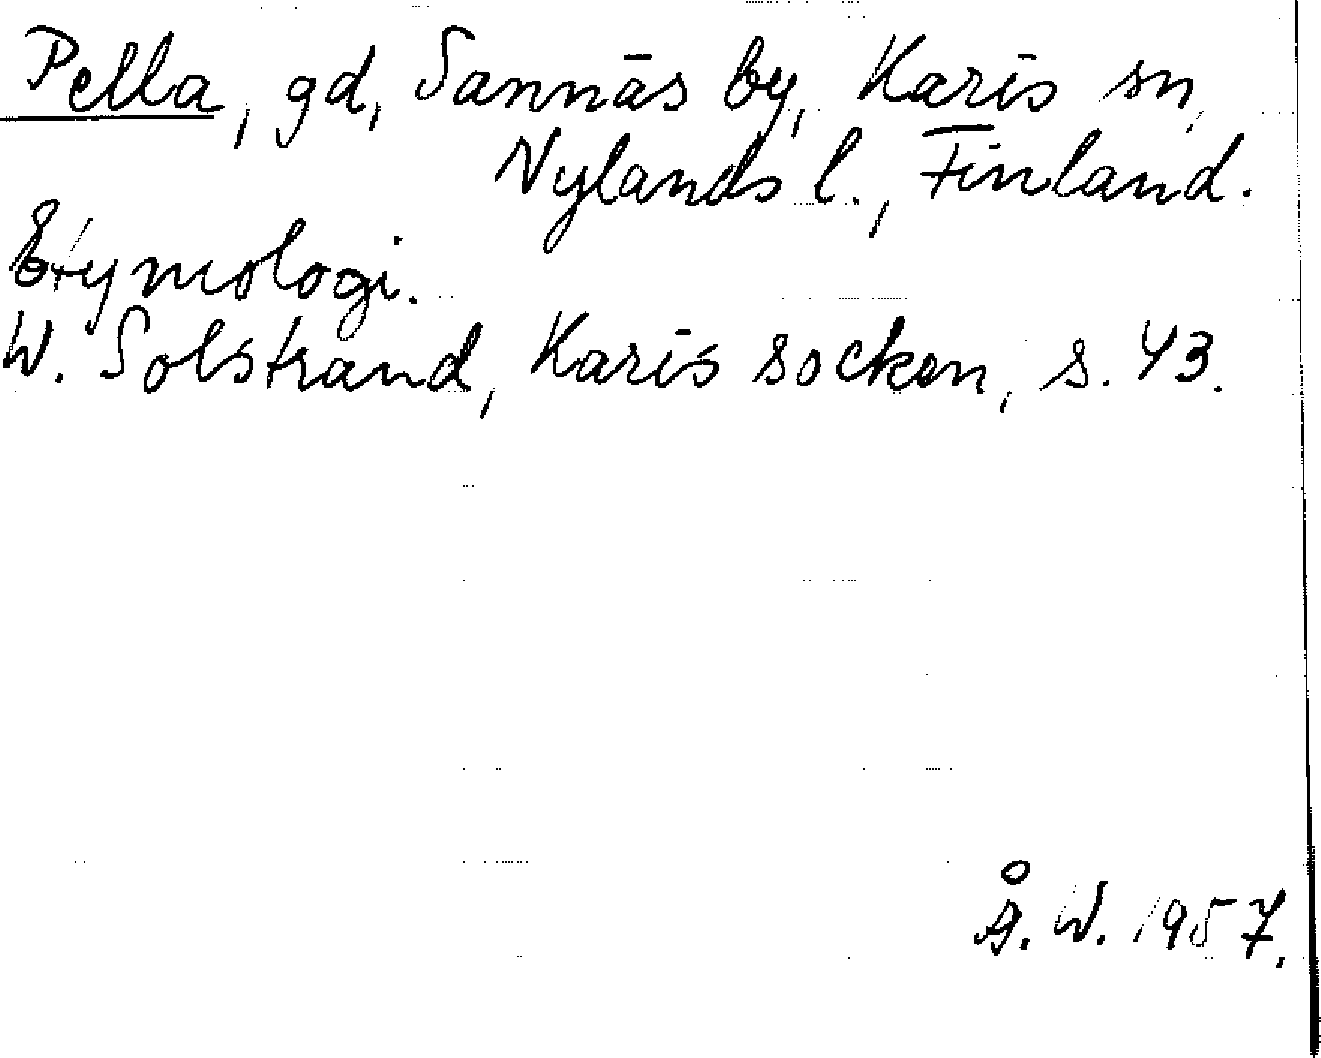 Pella, gd, Sannäs by, Karis sn,
Nylands l., Finland.
Etymologi.
W. Solstrand, Karis socken, s. 43.
Å. W. 1957.